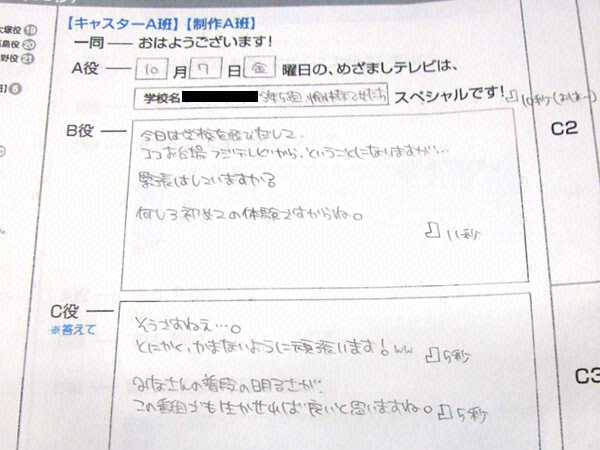 大塚役⑲
島役⑳
野役㉑
【キャスターA班】【制作A班】
一同 ── おはようございます！
A役 ── 10 月 7 日 金 曜日の、めざましテレビは、
学校名 3年5組 スペシャルです！ 10秒
B役 ──
今日は学校を飛び出して、
ココお台場フジテレビから、ということになりますが…
緊張はしていますか？
何しろ初めての体験ですからね。
11秒
C役 ──
※答えて
そうですねえ…。
とにかく、かまないように頑張います！ww 9秒
みなさんの普段の明るさが、
この番組でも生かせれば良いと思いますね。 5秒
C2
C3